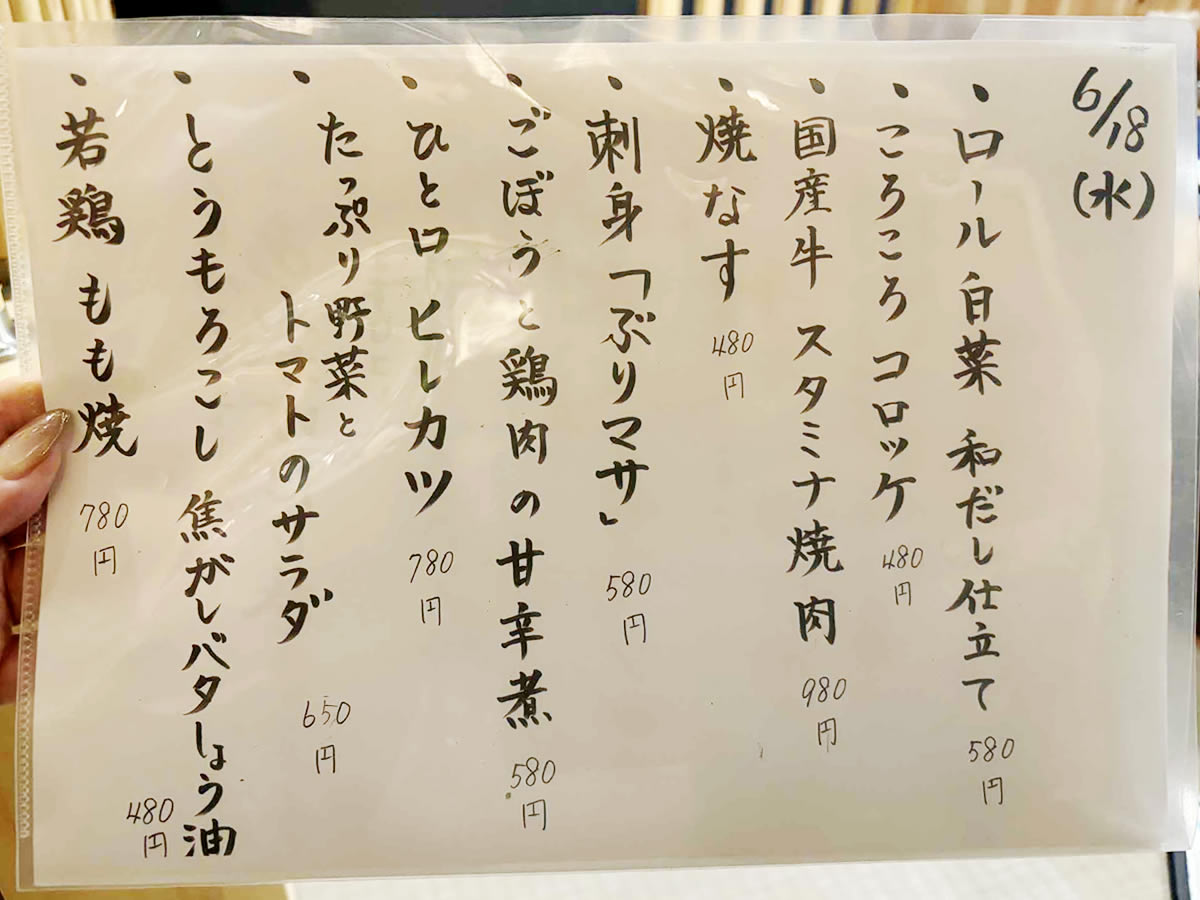 6/18
(水)
・ロール白菜 和だし仕立て 580円
・ころころ コロッケ 480円
・国産牛 スタミナ焼肉 980円
・焼なす 480円
・刺身「ぶりマサ」 580円
・ごぼうと鶏肉の甘辛煮 580円
・ひと口 ヒレカツ 780円
・たっぷり野菜と
トマトのサラダ 650円
・とうもろこし 焦がしバタしょう油 480円
・若鶏 もも焼 780円